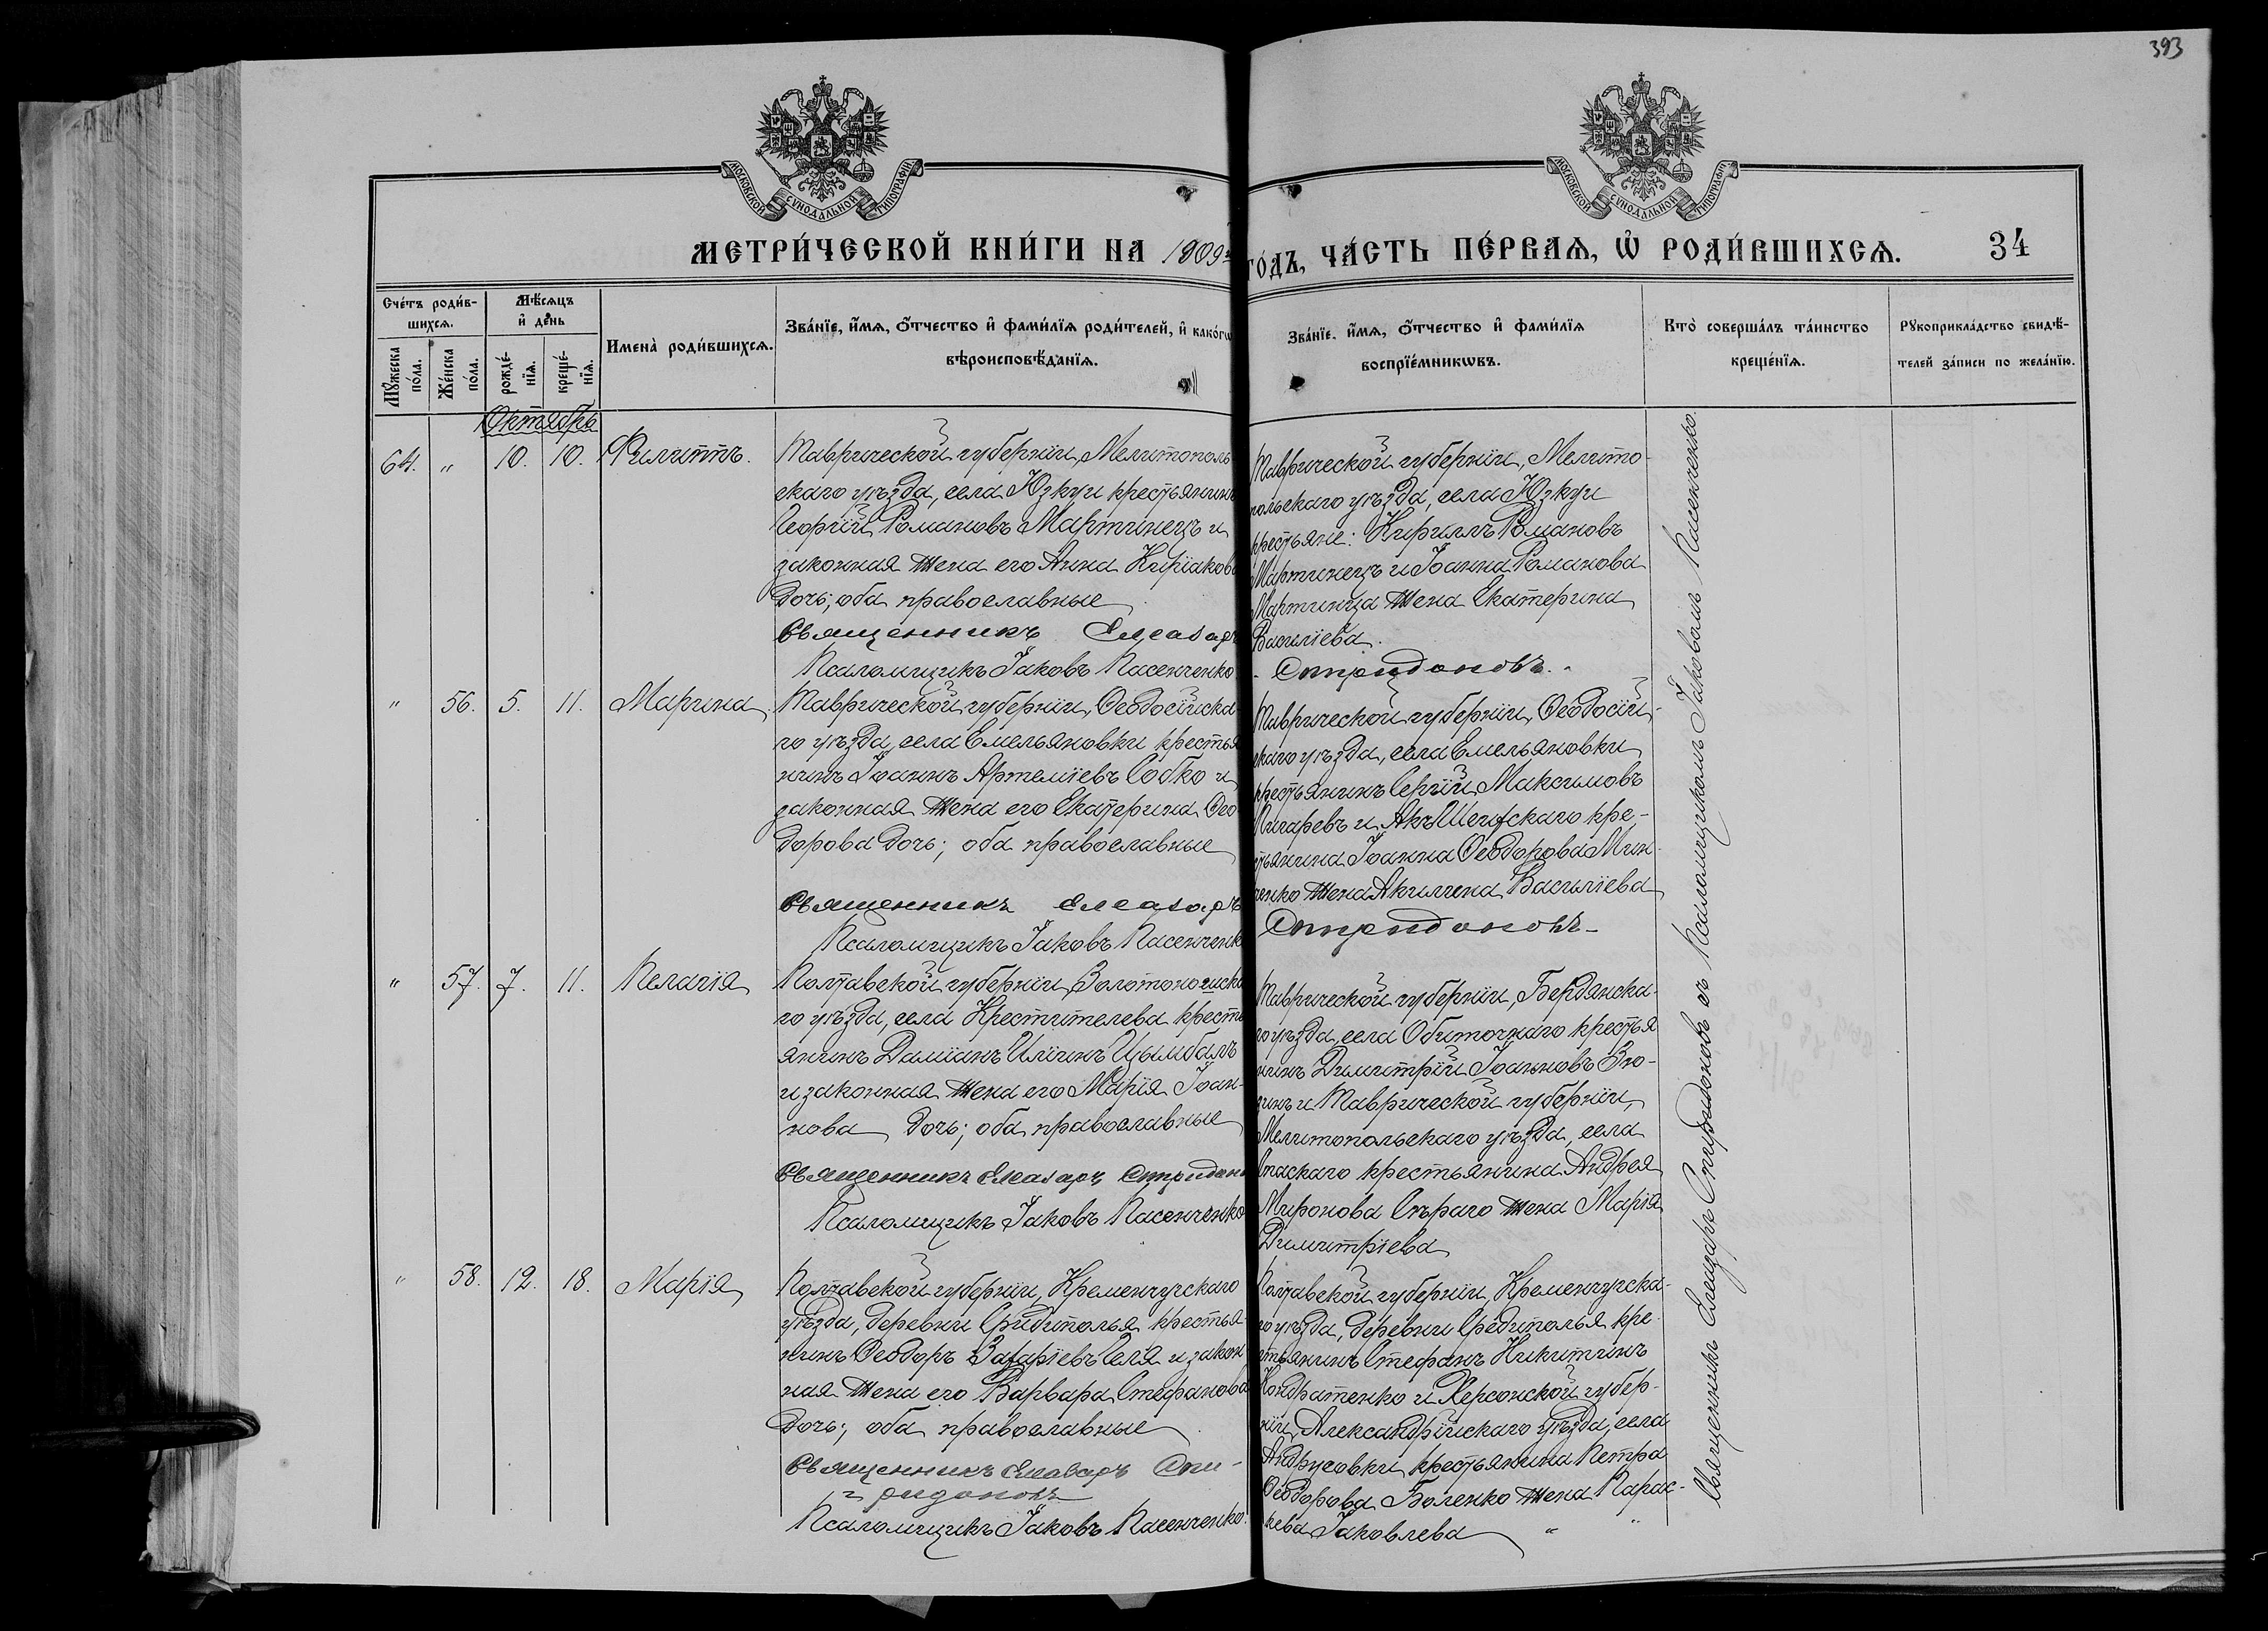 393
МОСКОВСКОЙ СѴНОДАЛЬНОЙ ТИПОГРАФІИ
МОСКОВСКОЙ СѴНОДАЛЬНОЙ ТИПОГРАФІИ
МЕТРИ́ЧЕСКОЙ КНИ́ГИ НА 1909й
ГО́ДЪ, ЧА́СТЬ ПЕ́РВАѦ, Ѽ РОДИ́ВШИХСѦ.
34
Сче́тъ роди́в-
шихсѧ.
Мꙋ́жеска по́ла.
Же́нска по́ла.
Мѣ́сѧцъ
и҆ де́нь
рожде́-
нїѧ.
креще́-
нїѧ.
Имена̀ роди́вшихсѧ.
Зва́нїе, и҆́мѧ, ѻ҆́тчество и҆ фами́лїѧ роди́телей, и҆ како́гѡ
вѣроисповѣ́данїѧ.
Зва́нїе, и҆́мѧ, ѻ҆́тчество и҆ фами́лїѧ
воспрїе́мникѡвъ.
Кто̀ соверша́лъ та́инство
креще́нїѧ.
Рꙋкоприкла́дство свидѣ́-
телей за́писи по жела́нїю.
Октябрь
64. " 10. 10. Филиппъ.
Таврической губерніи, Мелитополь-
скаго уѣзда, села Юзкуи крестьянинъ
Георгій Романовъ Мартинецъ и
законная жена его Анна Киріакова
дочь; оба православные
Священникъ Елеазаръ
Псаломщикъ Іаковъ Пасенченко
Таврической губерніи, Мелито-
польскаго уѣзда, села Юзкуи
крестьяне: Кириллъ Романовъ
Мартинецъ и Іоанна Романова
Мартинца жена Екатерина
Василіева.
Спиридоновъ.
" 56. 5. 11. Марина
Таврической губерніи, Ѳеодосійска-
го уѣзда, села Емельяновки крестья
нинъ Іоаннъ Артеміевъ Собко и
законная жена его Екатерина Ѳео
дорова дочь; оба православные
Священникъ Елеазаръ
Псаломщикъ Іаковъ Пасенченко
Таврической губерніи, Ѳеодосій-
скаго уѣзда, села Емельяновки
крестьянинъ Сергій Максимовъ
и кре-
стьянина Іоанна Ѳеодорова Мин
ченко жена Акилина Василіева
Спиридоновъ
" 57. 7. 11. Пелагія
Полтавской губерніи, Золотоношска
го уѣзда, села Крестителева кресть
янинъ Даміанъ Иліинъ Цымбалъ
и законная жена его Марія Іоан-
нова дочь; оба православные
Священникъ Елеазаръ Спиридонов
Псаломщикъ Іаковъ Пасенченко
Таврической губерніи, Бердянска-
го уѣзда, села Обиточнаго крестья
нинъ Димитрій Іоанновъ Зю-
зинъ и Таврической губерніи,
Мелитопольскаго уѣзда, села
Спаскаго крестьянина Андрея
Миронова Сѣраго жена Марія
Димитріева
" 58. 12. 18. Марія
Полтавской губерніи, Кременчугскаго
уѣзда, деревни крестья
нинъ Ѳеодоръ Захаріевъ и закон
ная жена его Варвара Стефанова
дочь; оба православные
Священникъ Елеазаръ Спи-
ридоновъ
Псаломщикъ Іаковъ Пасенченко.
Полтавской губерніи, Кременчугска-
го уѣзда, деревни кре
стьянинъ Стефанъ Никитинъ
Кондратенко и Херсонской губер-
ніи, Александрійскаго уѣзда, села
Андрусовки крестьянина Петра
Ѳеодорова Боленко жена Парас-
кева Іаковлева " "
Священникъ Елеазаръ Спиридоновъ съ Псаломщикомъ Іаковомъ Пасенченко.